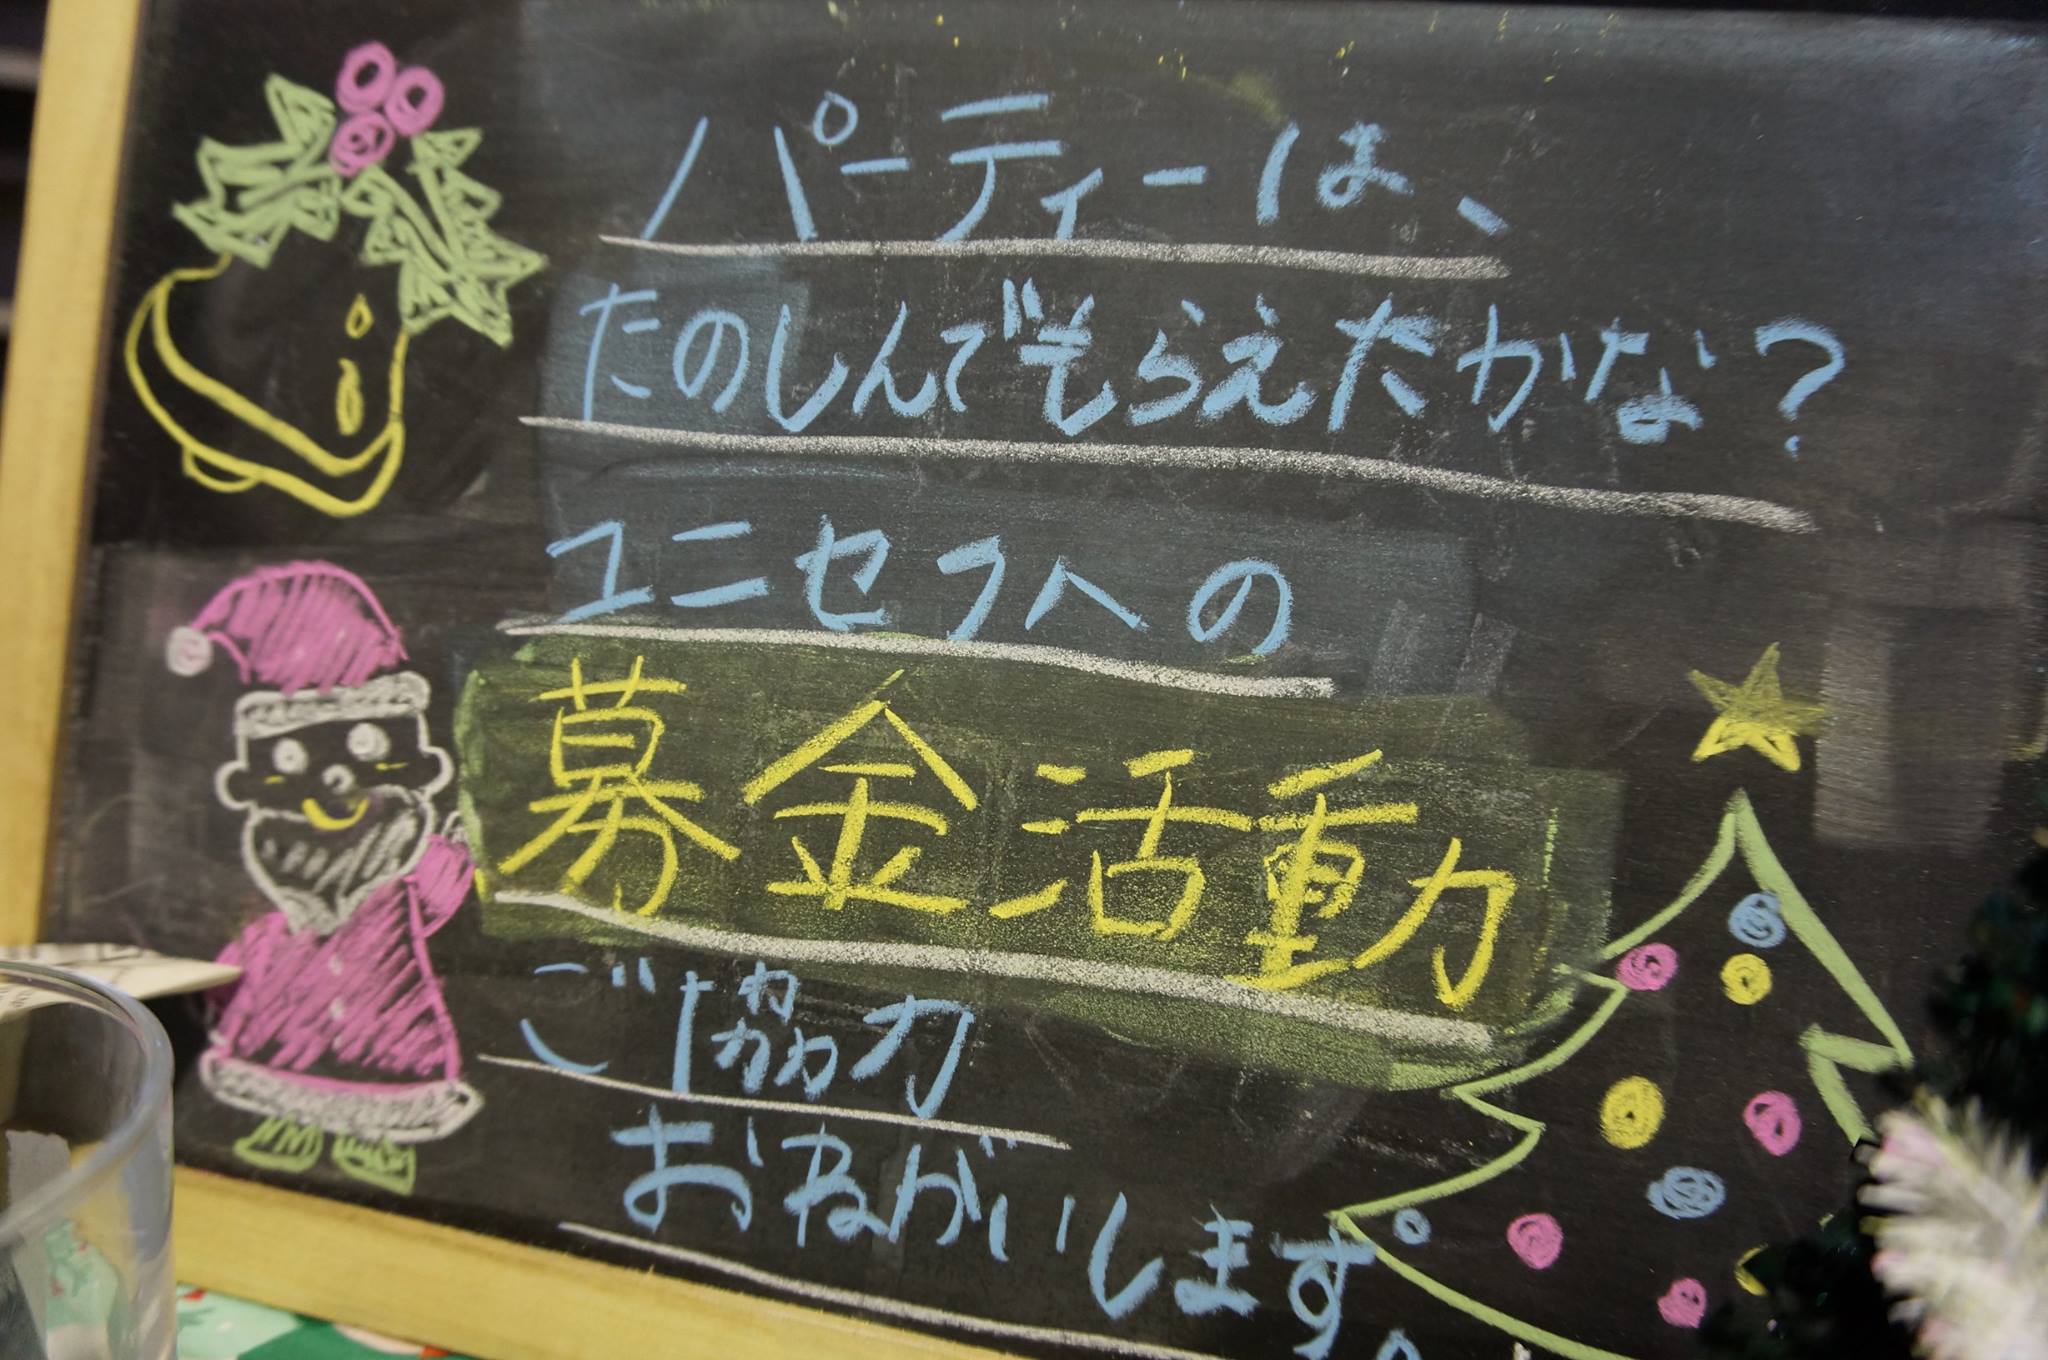 パーティーは、
たのしんでもらえたかな？
ユニセフへの
募金活動
ご協力
おねがいします。